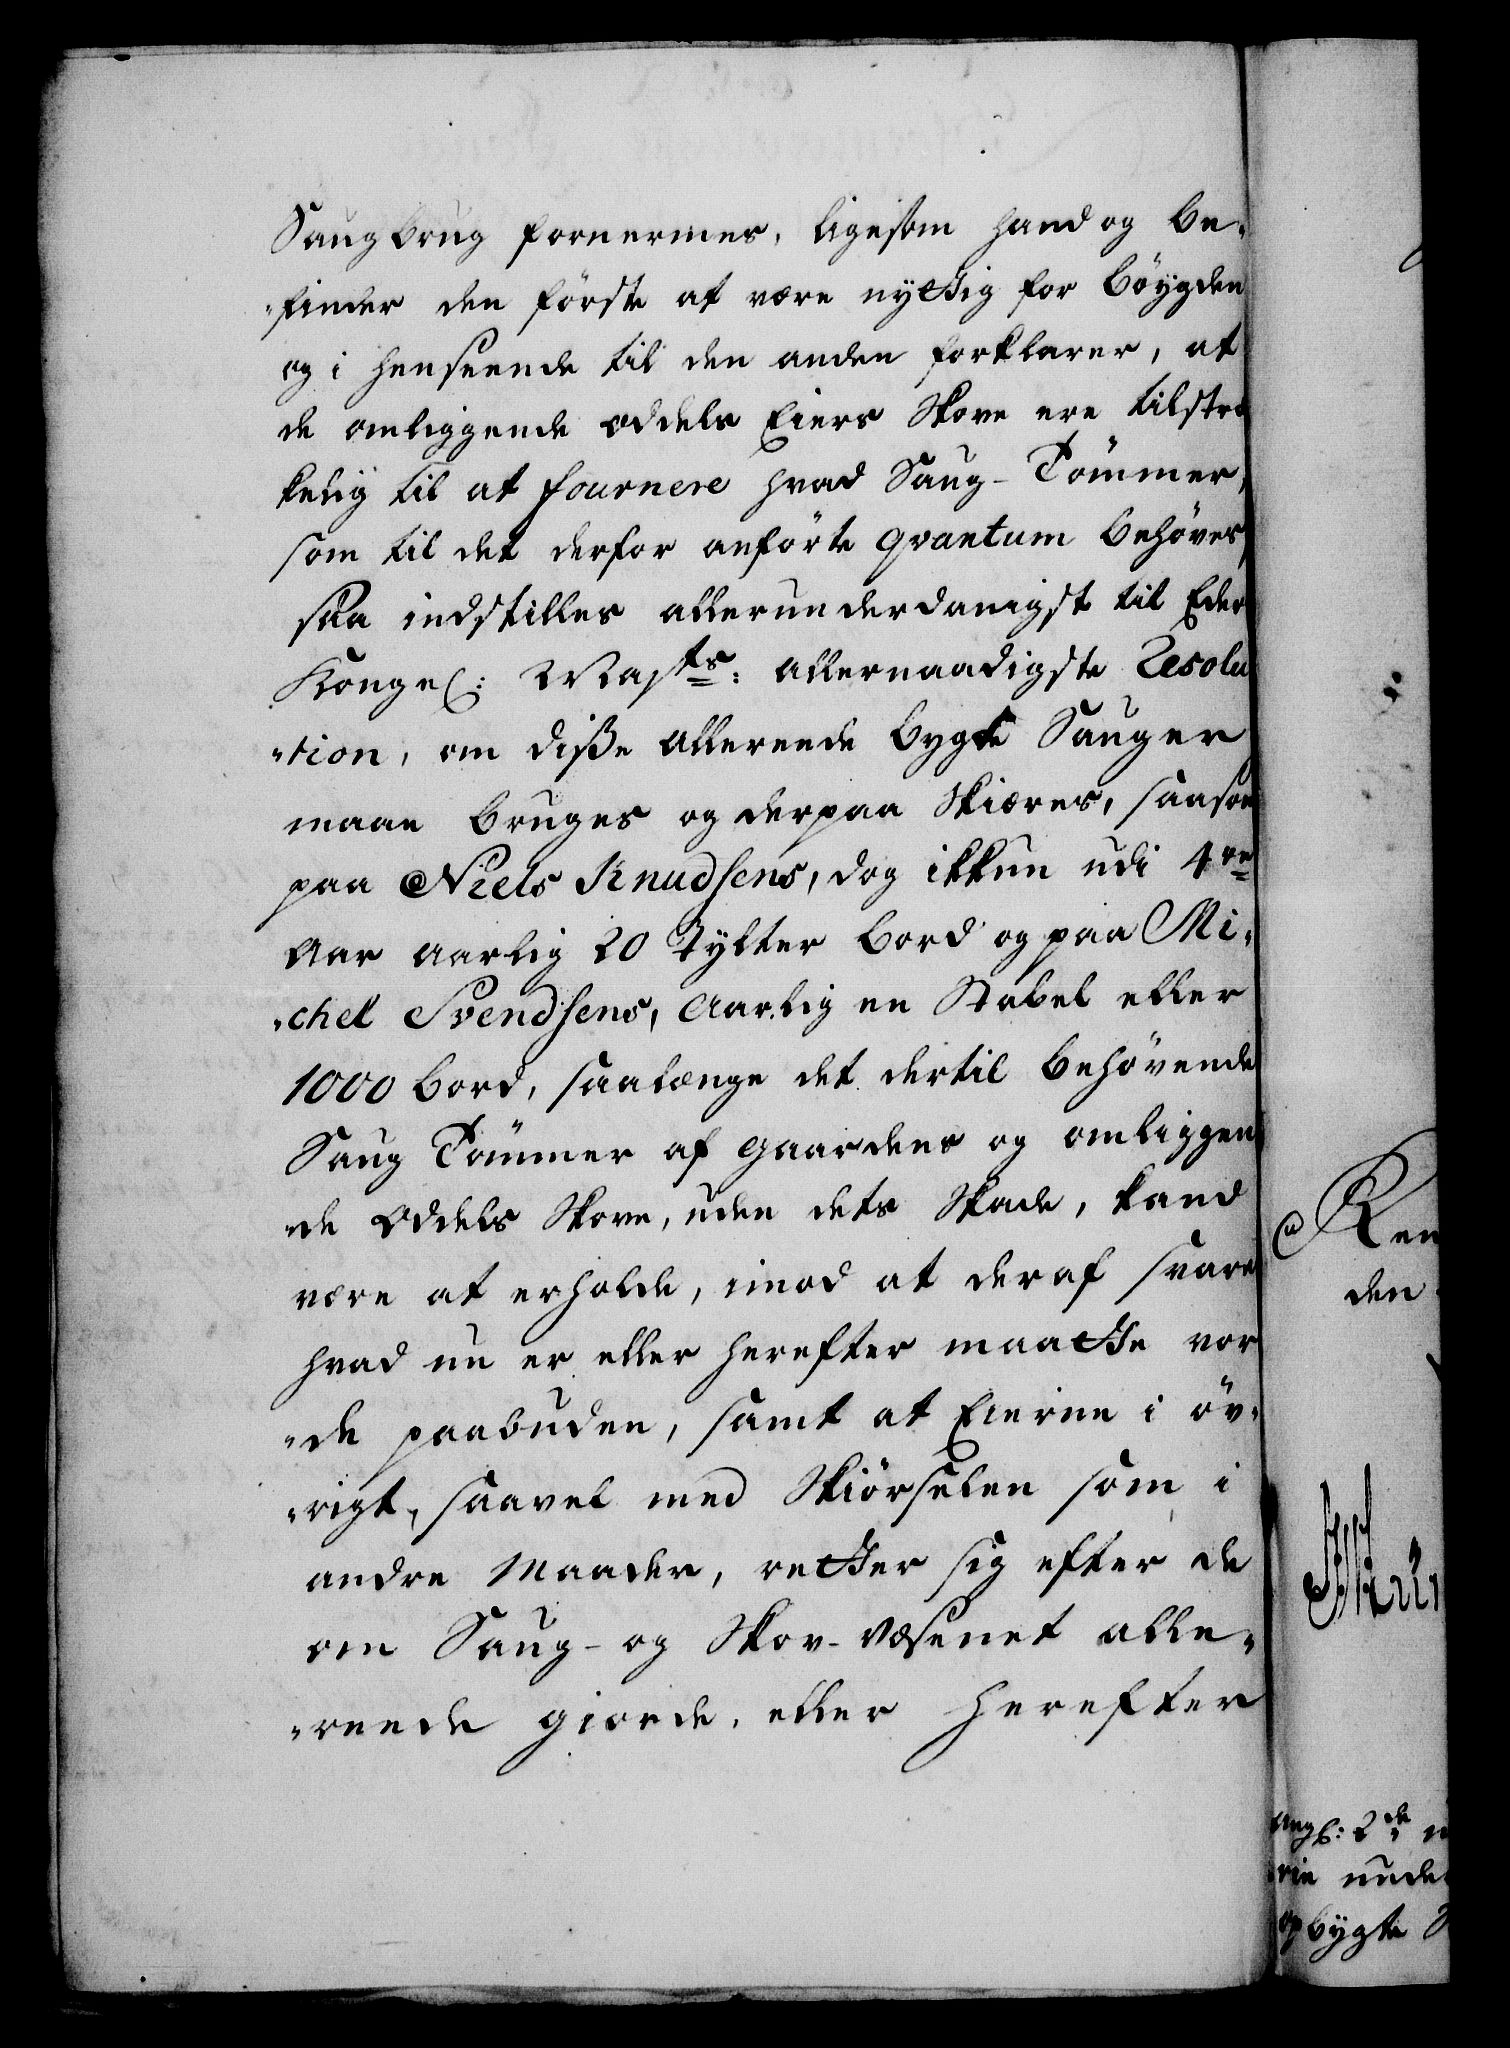 Saugbrug fornermes, ligesom hand og be-
-finder den förste at være nyttig for böygden
og i henseende til den anden forklarer, at
de omliggende Oddels Eiers Skove ere tilstræ
kelig til at fournere hvad Saug-Tömmer,
som til det derfor anförte qvantum behöves,
saa indstilles allerunderdanigst til Eders
Kongel: Mayts: allernaadigste Resolu
-tion, om diße allereede bygte Sauger
maae bruges og derpaa Skiæres, saasom
paa Niels Knudsens, dog ikkun udi 4re
Aar aarlig 20 Tylter bord og paa Mi-
-chel Svendsens, Aarlig en Stabel eller
1000 bord, saalænge det dertil behövende
Saug Tömmer af gaardens og omliggen
-de Oddels Skove, uden dets Skade, kand
være at erholde, imod at deraf svare
hvad nu er eller herefter maatte vor
-de paabuden, samt at Eierne i öv-
-rigt, saavel med Skiörselen som i
andre Maader, retter sig efter de
om Saug- og Skov-væsenet alle-
-reede giorde, eller herefter
Ren
den
angl: 2de
rie unde
opbygte S